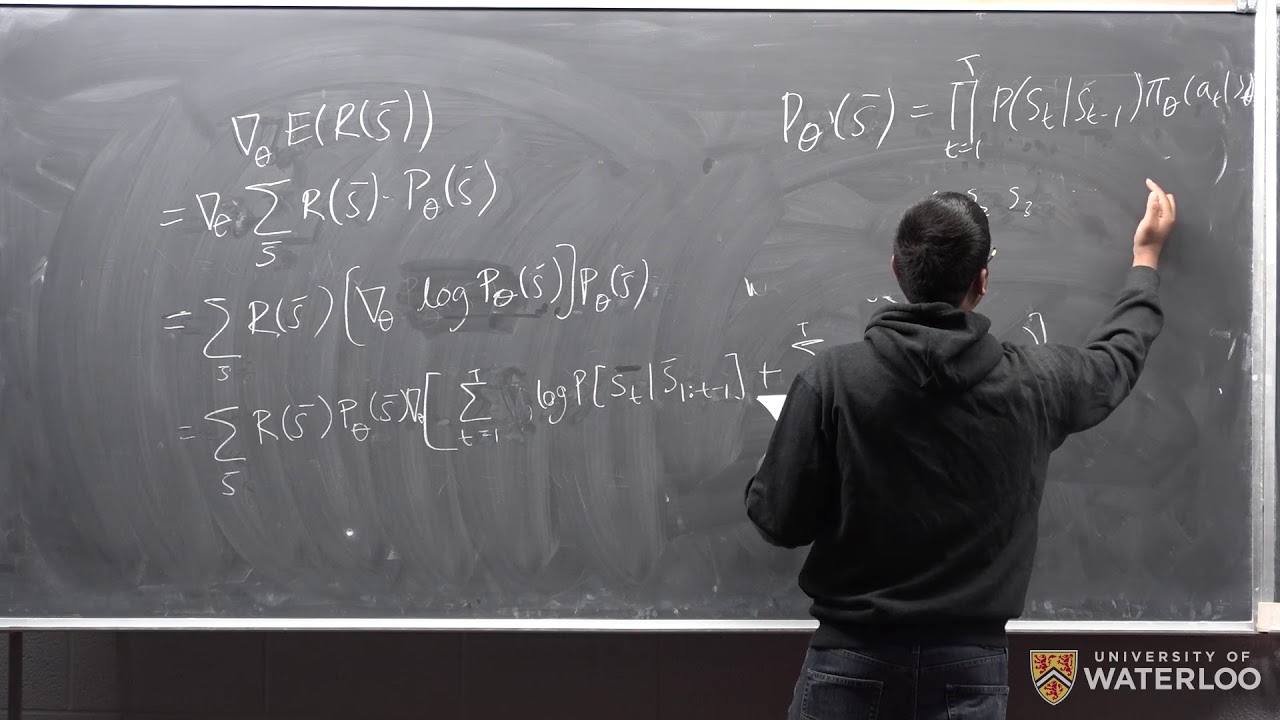 ∇θ E(R(s̄))
= ∇θ Σs̄ R(s̄)·Pθ(s̄)
= Σs̄ R(s̄)[∇θ log Pθ(s̄)]Pθ(s̄)
= Σs̄ R(s̄)Pθ(s̄)∇θ[Σ_{t=1}^{T} log P[St|s̄1:t-1] + Σ^T
Pθ(s̄) = ∏_{t=1}^{T} P(St|s̄t-1)πθ(at|
S2 S3
UNIVERSITY OF
WATERLOO